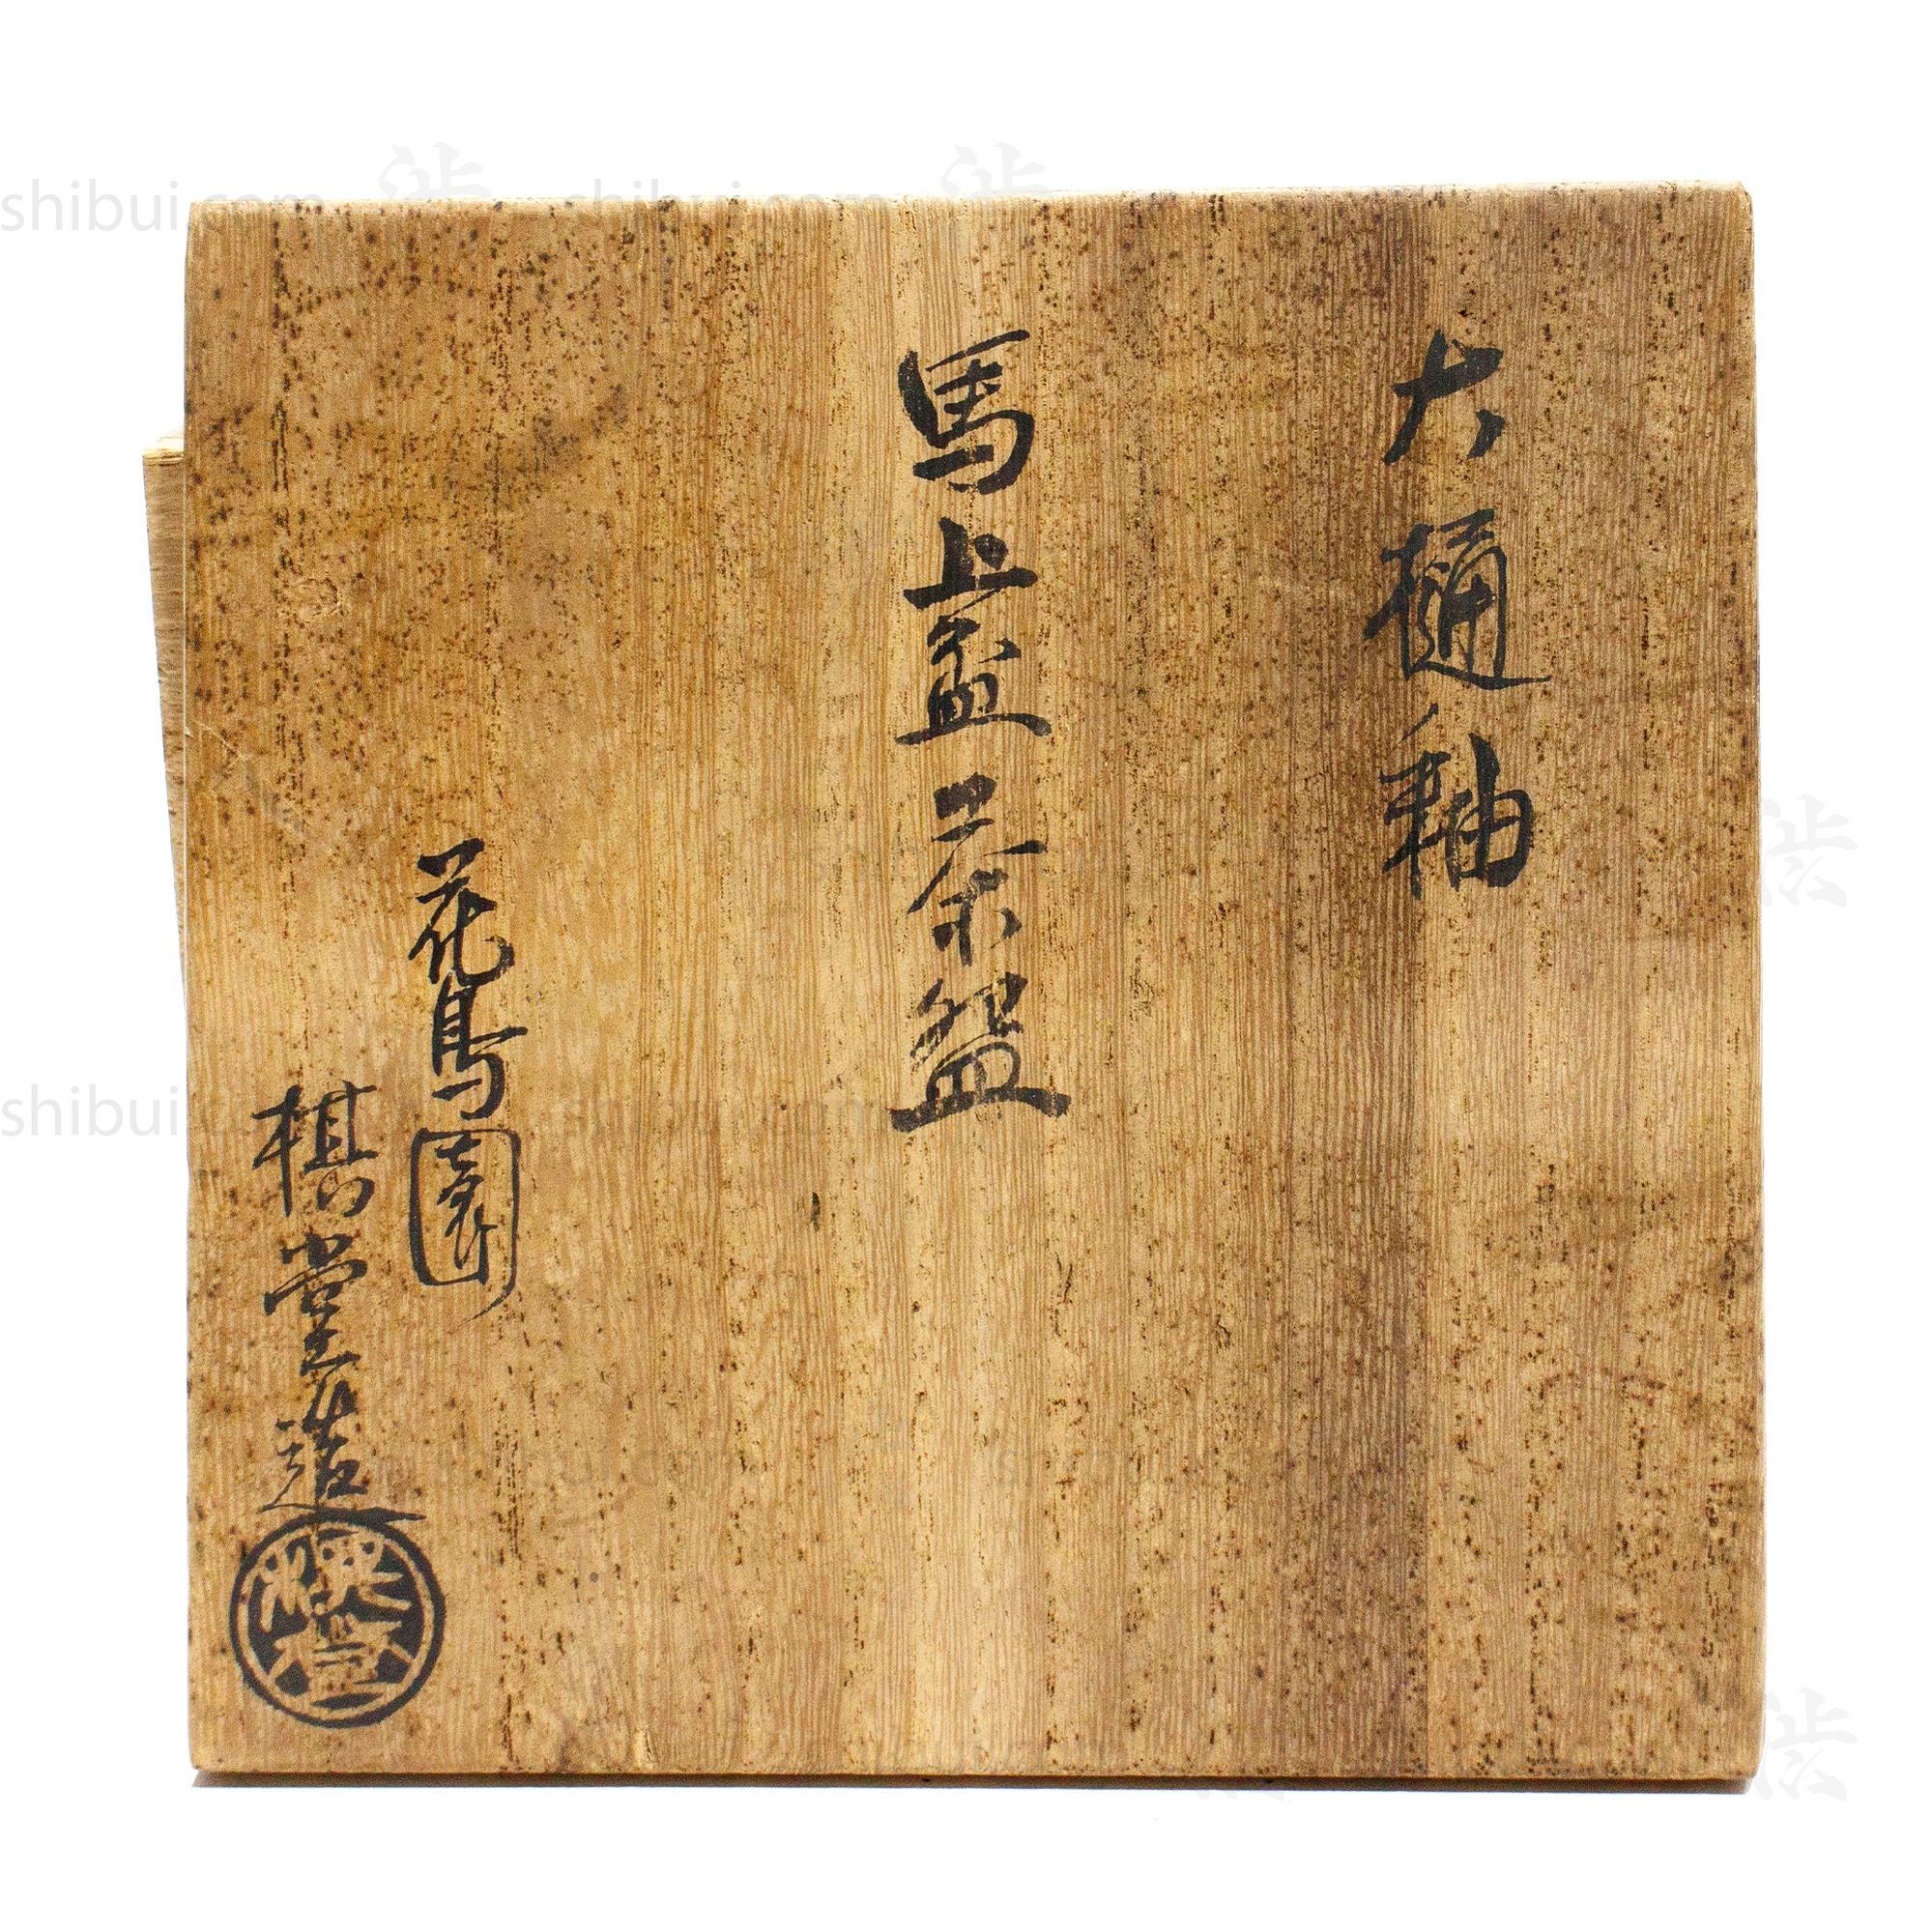 大樋釉
馬上盃茶盌
花鳥園
棋堂造
shibui.com
shibui.com
shibui.com
shibui.com
渋
渋
渋
渋